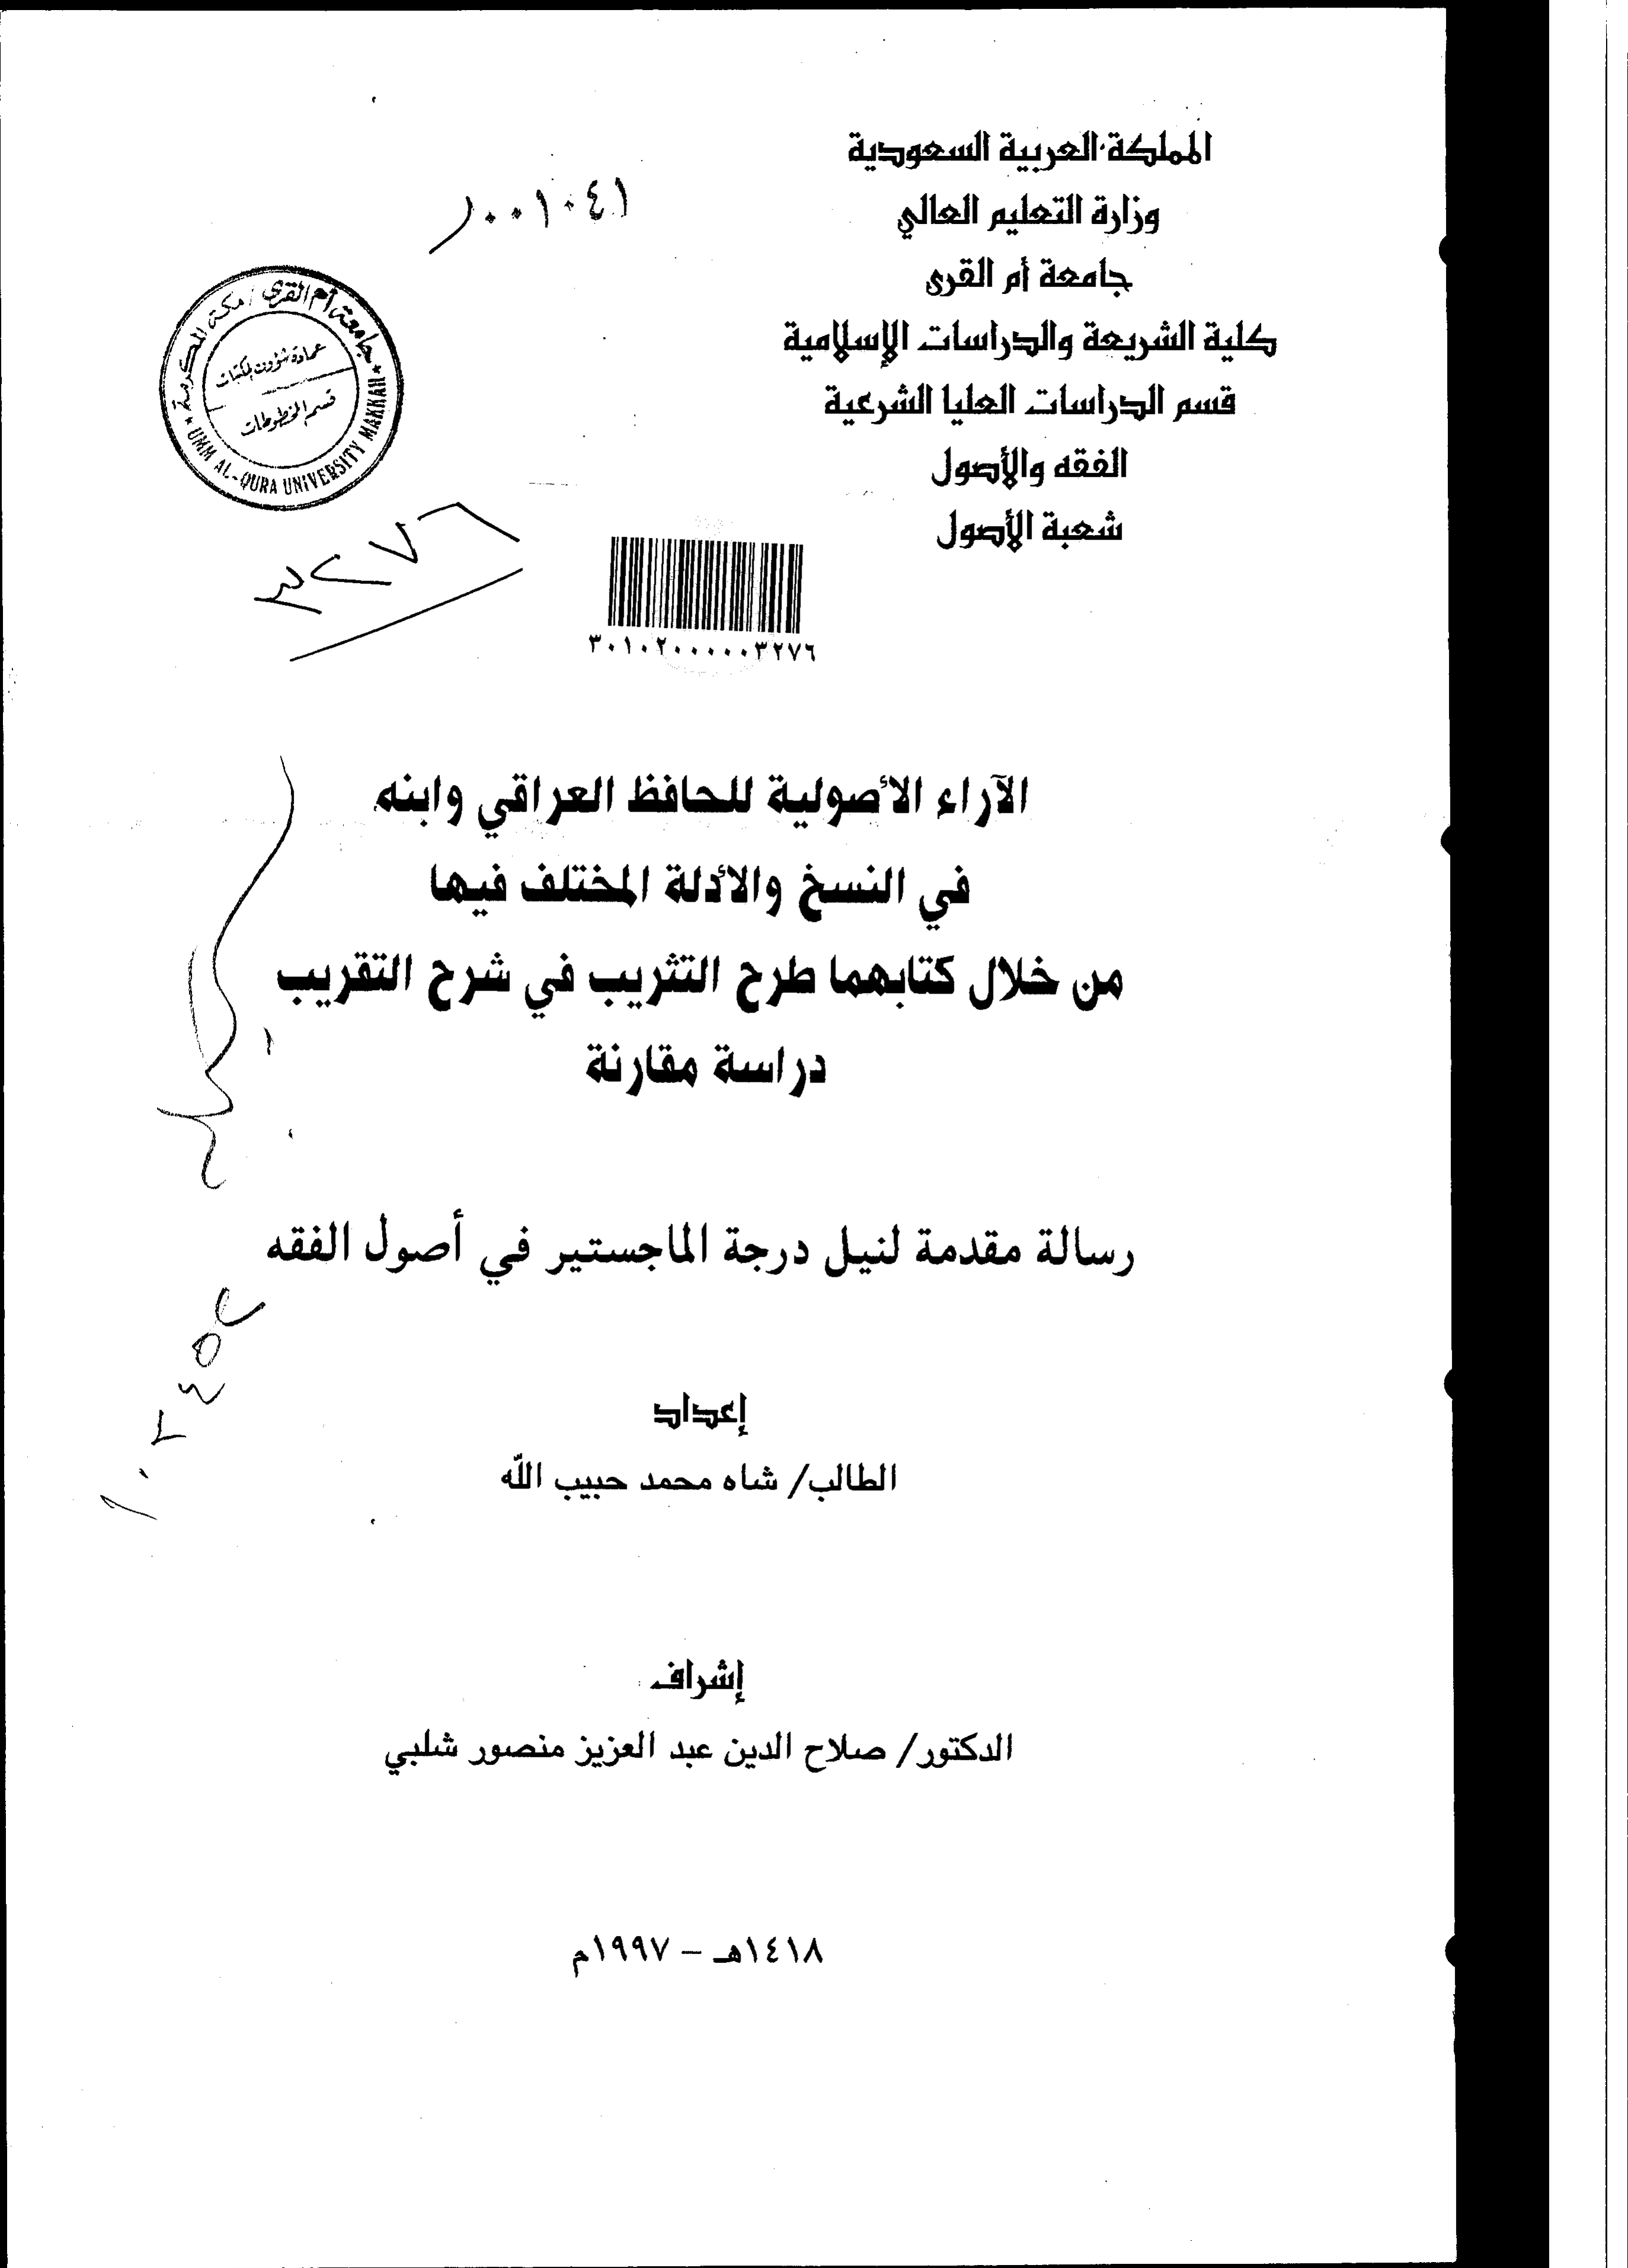 المملكة العربية السعودية
وزارة التعليم العالي
جامعة أم القرى
كلية الشريعة والدراسات الإسلامية
قسم الدراسات العليا الشرعية
الفقه والأصول
شعبة الأصول
٠٠١٠٤١
جامعة أم القرى / مكة المكرمة
عمادة شؤون المكتبات
قسم المخطوطات
UMM AL-QURA UNIVERSITY MAKKAH
٣٢٧٦
٣٠١٠٢٠٠٠٠٠٣٢٧٦
الآراء الأصولية للحافظ العراقي وابنه
في النسخ والأدلة المختلف فيها
من خلال كتابهما طرح التثريب في شرح التقريب
دراسة مقارنة
رسالة مقدمة لنيل درجة الماجستير في أصول الفقه
إعداد
الطالب/ شاه محمد حبيب الله
إشراف
الدكتور/ صلاح الدين عبد العزيز منصور شلبي
١٤١٨هـ – ١٩٩٧م